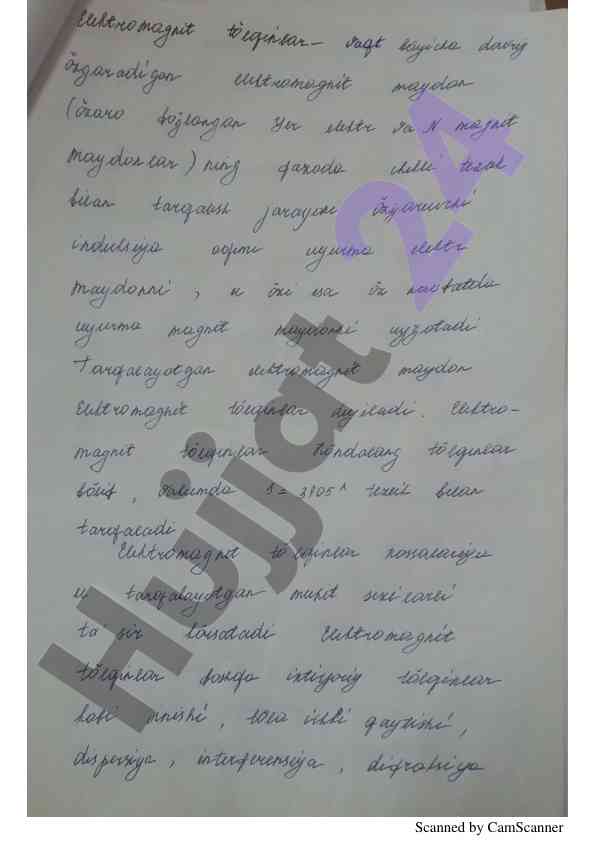 Elektromagnit tölqinlar– vaqt böyicha davriy
özgaradigan elektromagnit maydon
(özaro boğlangan Yer elektr va N magnit
maydonlar) ning fazoda chekli tezlik
bilan tarqalish jarayoni özgaruvchi
induksiya oqimi uyurma elektr
maydonni, u özi esa öz navbatida
uyurma magnit maydonni uyğotadi
Tarqalayotgan elektromagnit maydon
Elektromagnit tölqinlar deyiladi. Elektro-
magnit tölqinlar köndalang tölqinlar
bölib, vakuumda tezlik bilan
tarqaladi
Elektromagnit tölqinlar xossalariga
u tarqalayotgan muhit
ta'sir körsatadi Elektromagnit
tölqinlar boshqa ixtiyoriy tölqinlar
kabi sinishi, töla ichki qaytishi,
dispersiya, interferensiya, difraksiya
Hujjat 24
Scanned by CamScanner